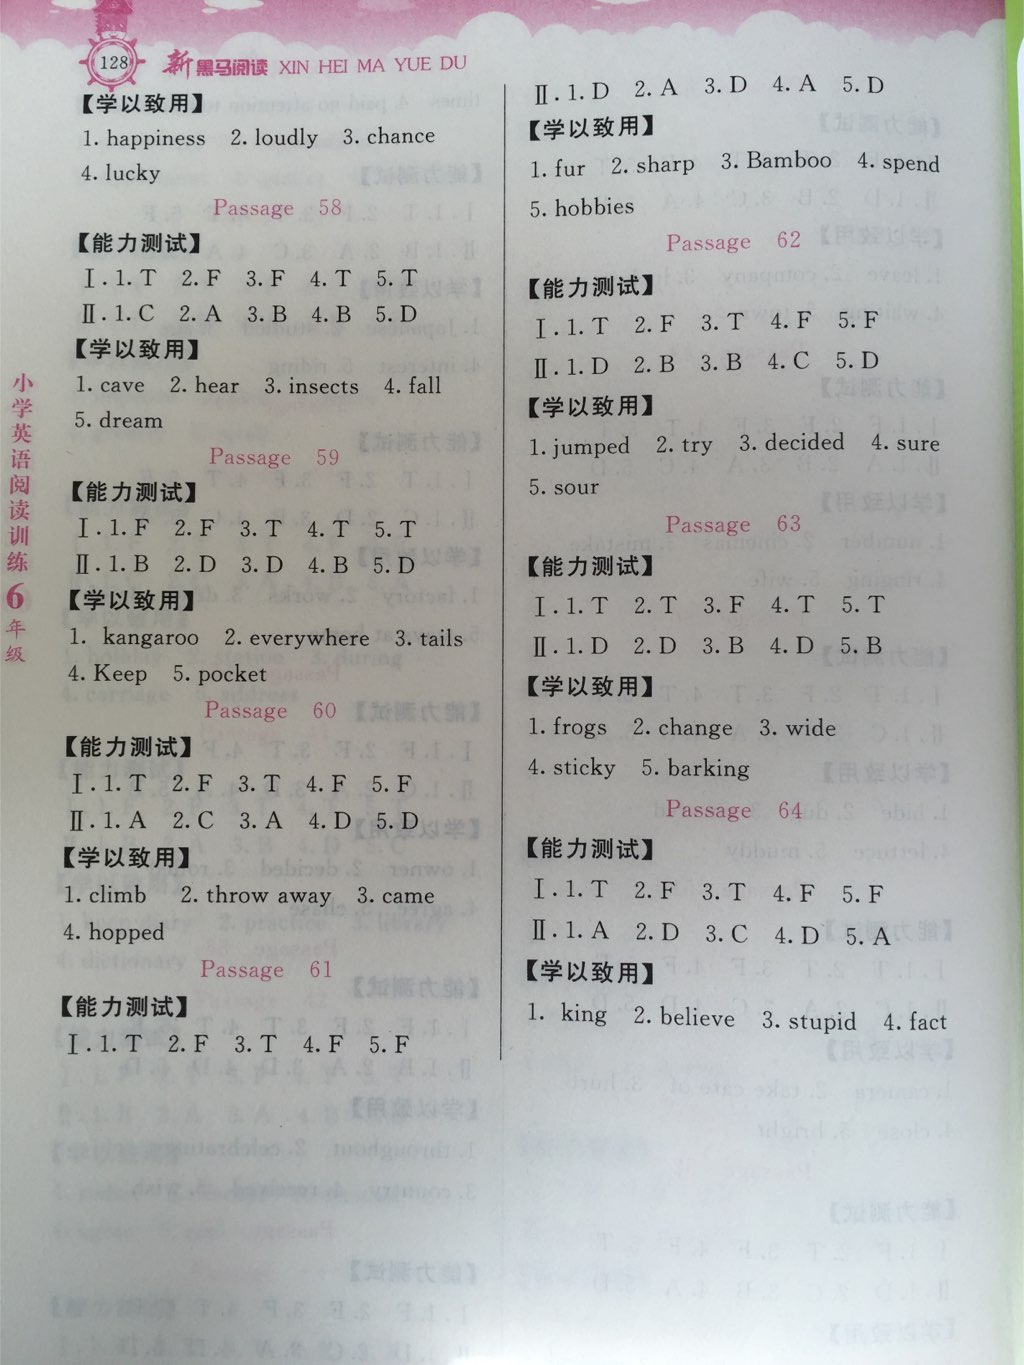 128
新黑马阅读 XIN HEI MA YUE DU
【学以致用】
1. happiness 2. loudly 3. chance
4. lucky
Passage 58
【能力测试】
Ⅰ. 1. T 2. F 3. F 4. T 5. T
Ⅱ. 1. C 2. A 3. B 4. B 5. D
【学以致用】
1. cave 2. hear 3. insects 4. fall
5. dream
Passage 59
【能力测试】
Ⅰ. 1. F 2. F 3. T 4. T 5. T
Ⅱ. 1. B 2. D 3. D 4. B 5. D
【学以致用】
1. kangaroo 2. everywhere 3. tails
4. Keep 5. pocket
Passage 60
【能力测试】
Ⅰ. 1. T 2. F 3. T 4. F 5. F
Ⅱ. 1. A 2. C 3. A 4. D 5. D
【学以致用】
1. climb 2. throw away 3. came
4. hopped
Passage 61
【能力测试】
Ⅰ. 1. T 2. F 3. T 4. F 5. F
Ⅱ. 1. D 2. A 3. D 4. A 5. D
【学以致用】
1. fur 2. sharp 3. Bamboo 4. spend
5. hobbies
Passage 62
【能力测试】
Ⅰ. 1. T 2. F 3. T 4. F 5. F
Ⅱ. 1. D 2. B 3. B 4. C 5. D
【学以致用】
1. jumped 2. try 3. decided 4. sure
5. sour
Passage 63
【能力测试】
Ⅰ. 1. T 2. T 3. F 4. T 5. T
Ⅱ. 1. D 2. D 3. B 4. D 5. B
【学以致用】
1. frogs 2. change 3. wide
4. sticky 5. barking
Passage 64
【能力测试】
Ⅰ. 1. T 2. F 3. T 4. F 5. F
Ⅱ. 1. A 2. D 3. C 4. D 5. A
【学以致用】
1. king 2. believe 3. stupid 4. fact
小学英语阅读训练6年级